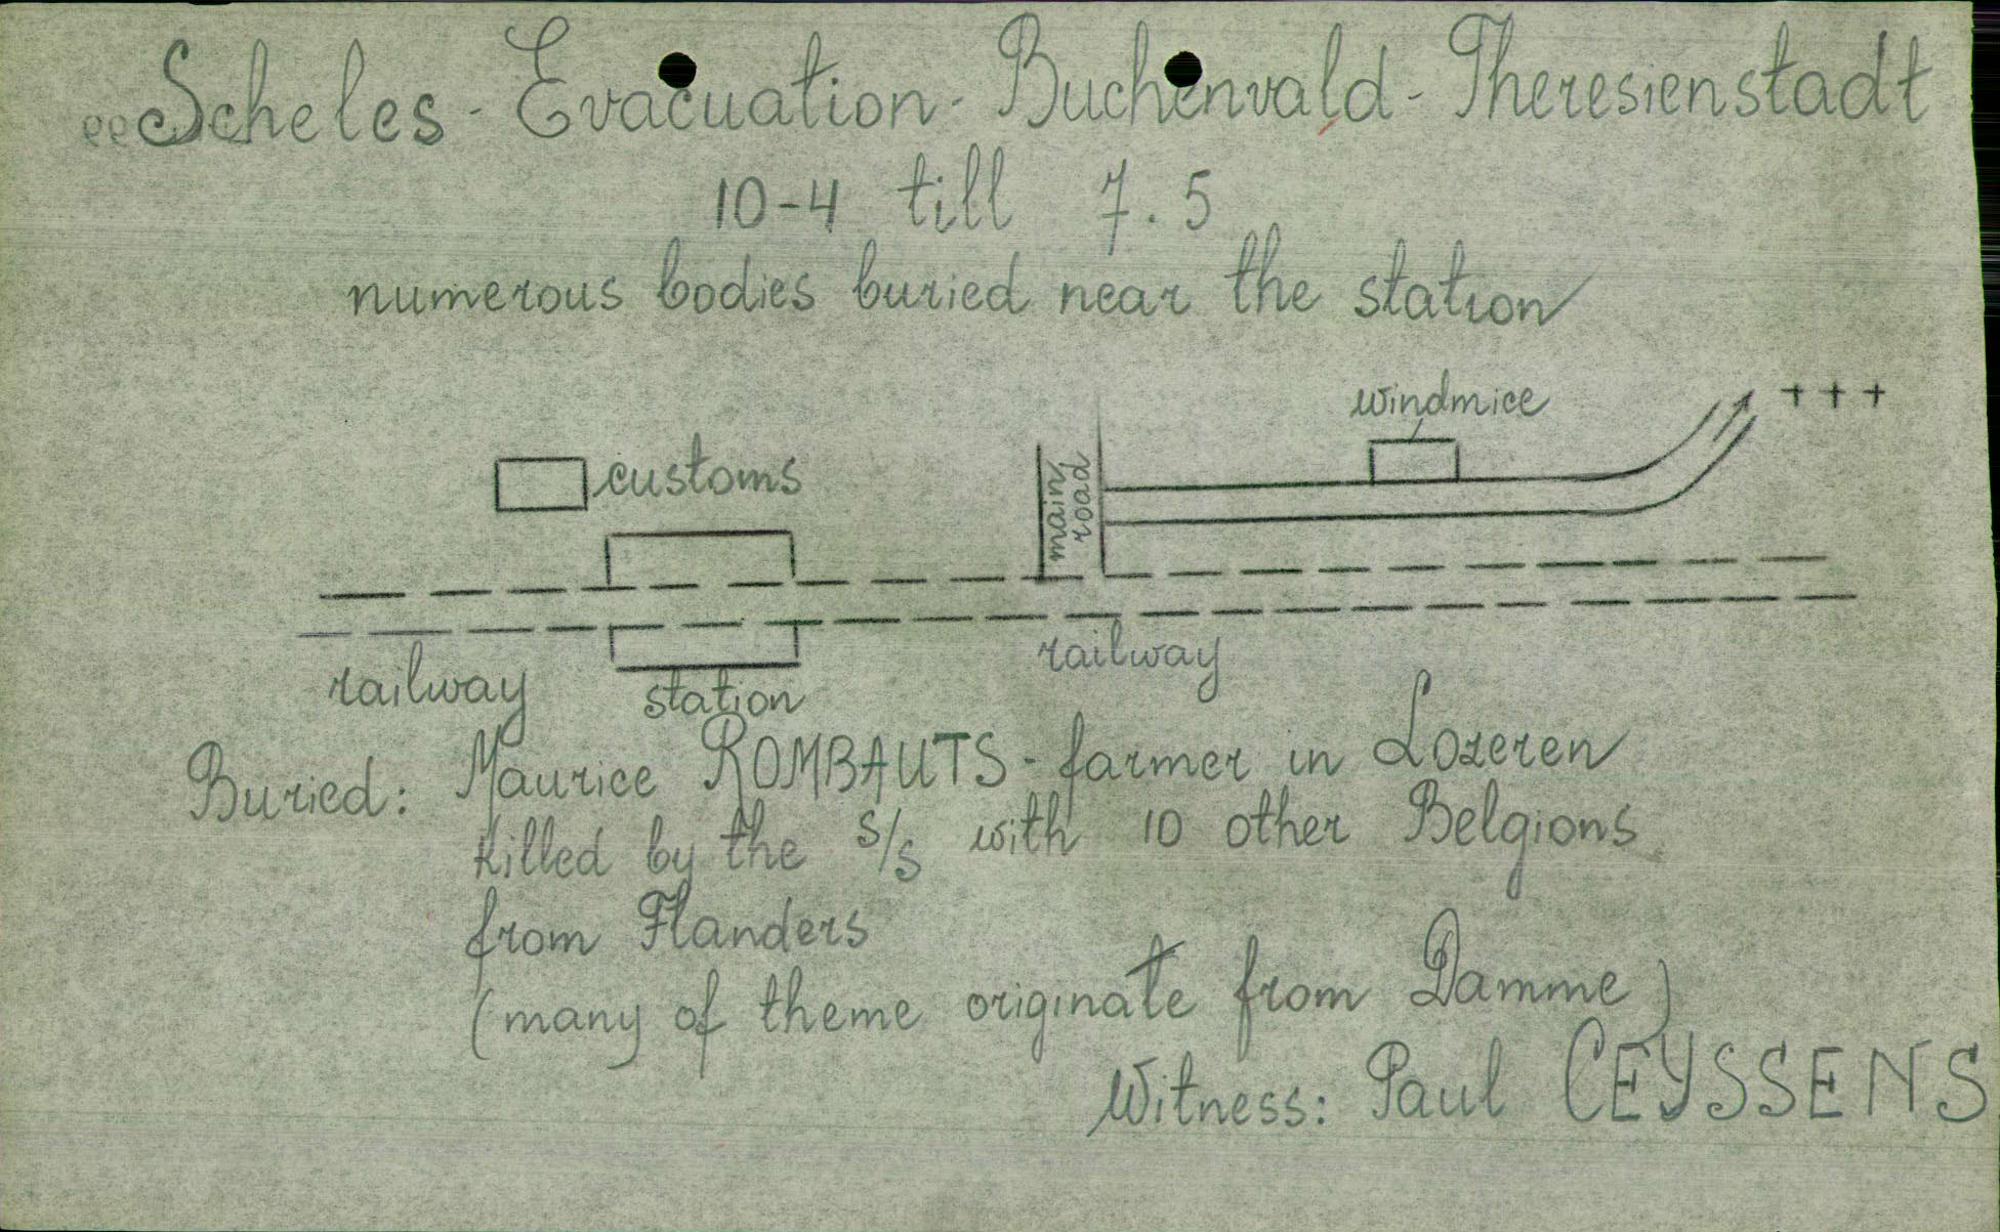 Scheles - Evacuation - Buchenvald - Theresienstadt
10-4 till 7.5
numerous bodies buried near the station
windmice
+ + +
customs
main road
railway
station
railway
Buried: Maurice ROMBAUTS - farmer in Lozeren
killed by the S/S with 10 other Belgions
from Flanders
(many of theme originate from Damme)
Witness: Paul CEYSSENS